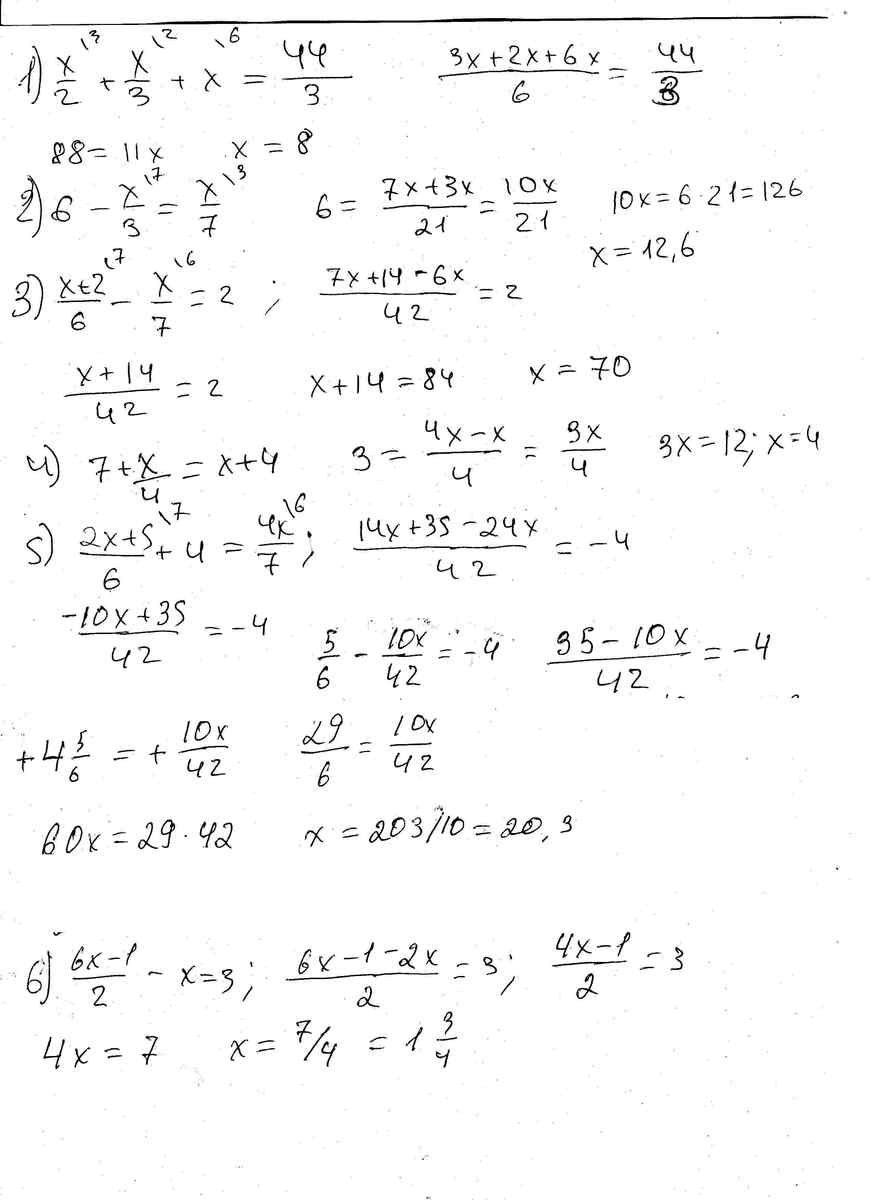 1) x/2 \3 + x/3 \2 + x \6 = 44/3    (3x+2x+6x)/6 = 44/3
88 = 11x    x = 8
2) 6 - x/3 \7 = x/7 \3    6 = (7x+3x)/21 = 10x/21    10x = 6·21 = 126
x = 12,6
3) (x+2)/6 \7 - x/7 \6 = 2 ;    (7x+14-6x)/42 = 2
(x+14)/42 = 2    x+14 = 84    x = 70
4) 7 + x/4 = x+4    3 = (4x-x)/4 = 3x/4    3x = 12; x = 4
5) (2x+5)/6 \7 + 4 = 4x/7 \6 ;    (14x+35-24x)/42 = -4
(-10x+35)/42 = -4    5/6 - 10x/42 = -4    (35-10x)/42 = -4
+4 5/6 = + 10x/42    29/6 = 10x/42
60x = 29·42    x = 203/10 = 20,3
6) (6x-1)/2 - x = 3 ;    (6x-1-2x)/2 = 3 ;    (4x-1)/2 = 3
4x = 7    x = 7/4 = 1 3/4